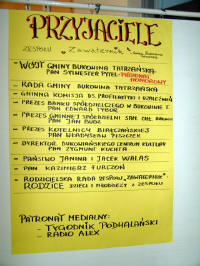 PRZYJACIELE
ZESPOŁU "Zawaternik"
- WÓJT GMINY BUKOWINA TATRZAŃSKA
PAN SYLWESTER PYTEL - PATRONAT
HONOROWY
- RADA GMINY BUKOWINA TATRZAŃSKA
- GMINNA KOMISJA DS. PROFILAKTYKI I UZALEŻNIEŃ
- PREZES BANKU SPÓŁDZIELCZEGO W BUKOWINIE T.
PAN EDWARD TYBOR
- PREZES GMINNEJ SPÓŁDZIELNI SAM. CHŁ.
PAN JAN BUDZ
- PREZES KOTELNICY BIAŁCZAŃSKIEJ
PAN WŁADYSŁAW PISZCZEK
- DYREKTOR BUKOWIAŃSKIEGO CENTRUM KULTURY
PAN ZYGMUNT KUCHTA
- PAŃSTWO JANINA I JACEK WALAS
- PAN KAZIMIERZ FURCZOŃ
- RODZICIELSKA RADA ZESPOŁU "ZAWATERNIK"
RODZICE DZIECI I MŁODZIEŻY Z ZESPOŁU
PATRONAT MEDIALNY:
- TYGODNIK PODHALAŃSKI
- RADIO ALEX